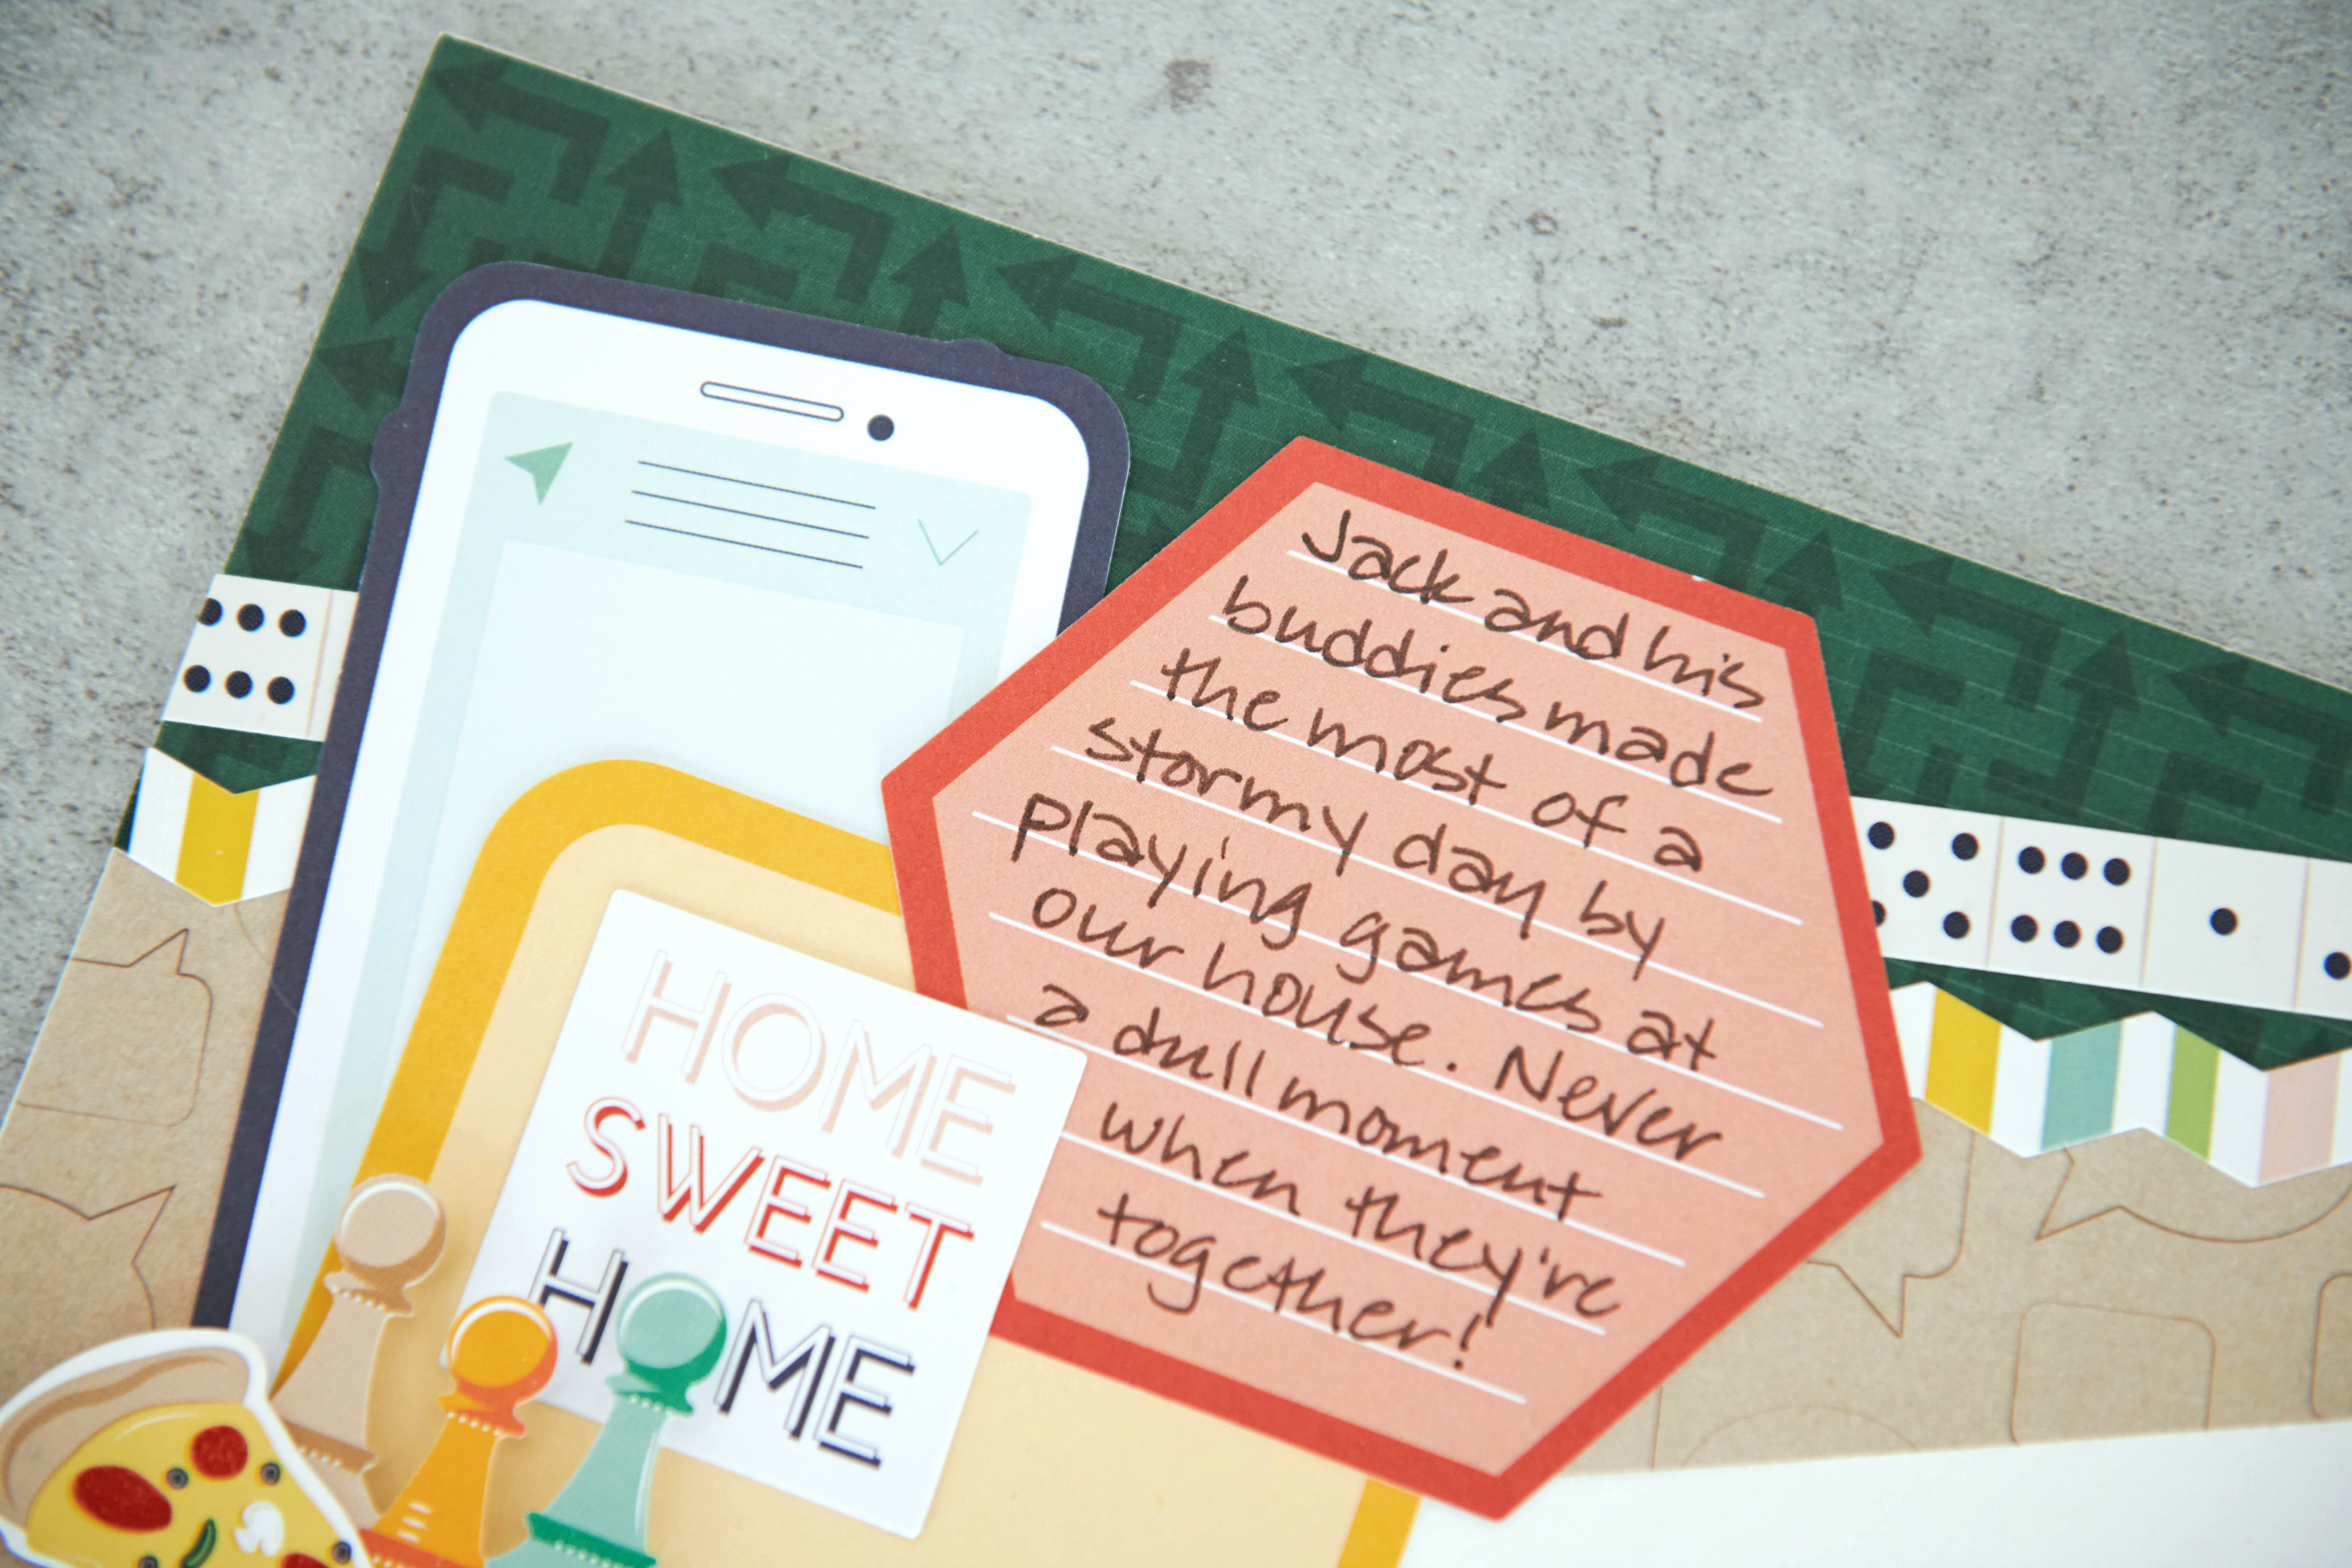 Jack and his
buddies made
the most of a
stormy day by
playing games at
our house. Never
a dull moment
when they're
together!
HOME
SWEET
HOME